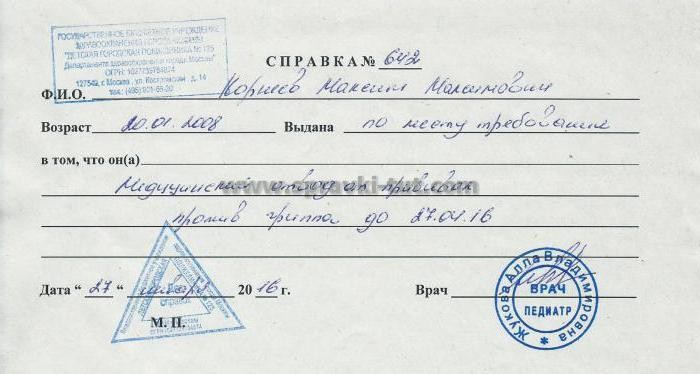 ГОСУДАРСТВЕННОЕ БЮДЖЕТНОЕ УЧРЕЖДЕНИЕ
ЗДРАВООХРАНЕНИЯ ГОРОДА МОСКВЫ
"ДЕТСКАЯ ГОРОДСКАЯ ПОЛИКЛИНИКА № 125
Департамента здравоохранения города Москвы"
127549, г. Москва, ул. д. 14
СПРАВКА № 642
Ф.И.О. Корнеев Максим Максимович
Возраст 20.01.2008 Выдана по месту требования
в том, что он(а)
Медицинский отвод от прививок
www.spravki-tut.com
против гриппа до 27.04.16
Дата "27" января 2016 г. Врач
М. П.
Жукова Алла Владимировна
ВРАЧ
ПЕДИАТР